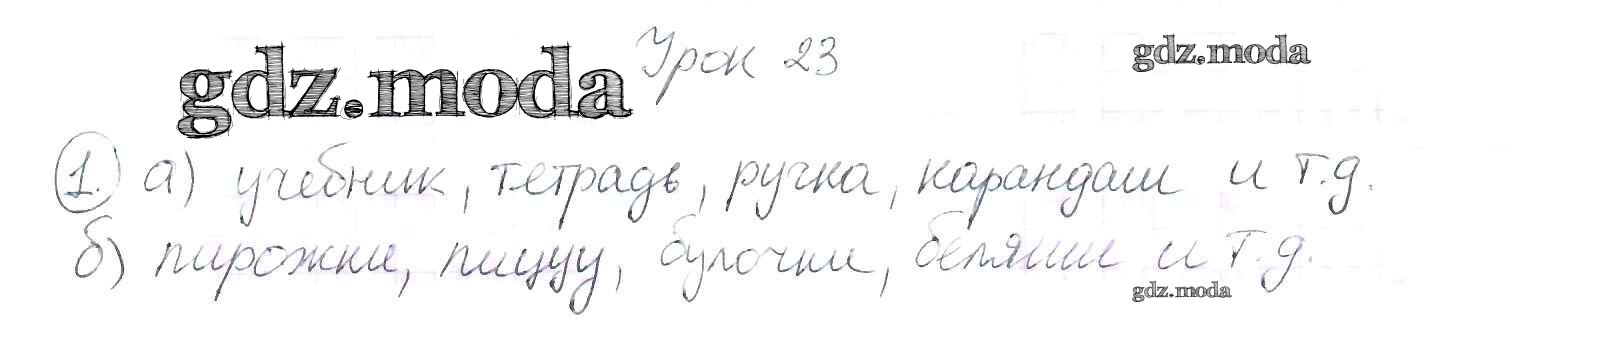 Урок 23
gdz.moda
gdz.moda
1. а) учебник, тетрадь, ручка, карандаш и т.д.
б) пирожки, пиццу, булочки, беляши и т.д.
gdz.moda